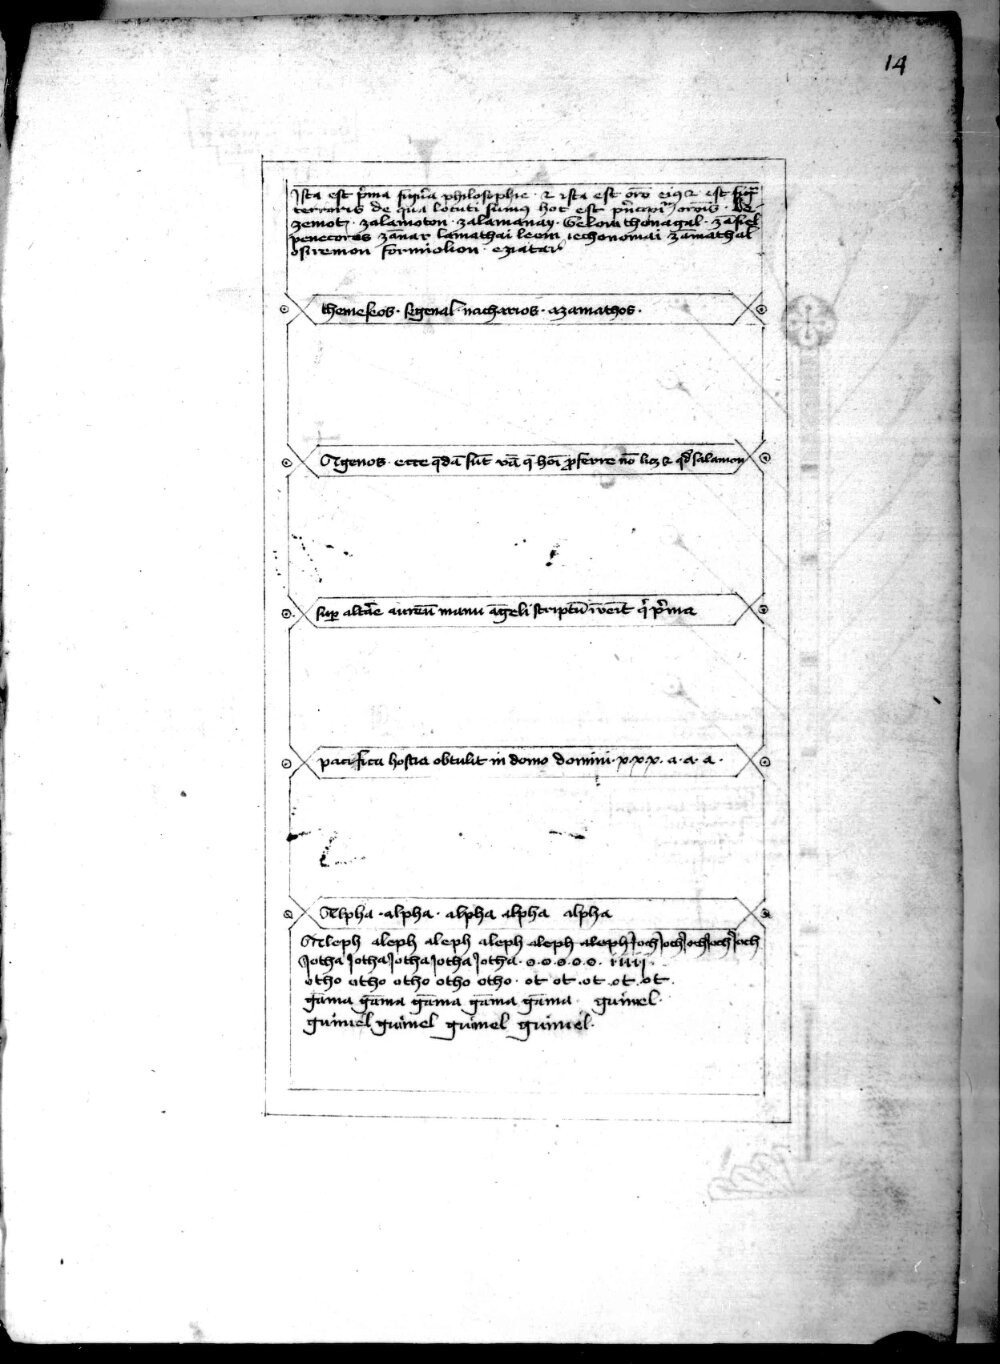 14
Ista est p̄ma figura philosophie · ⁊ ista est or̄o eiꝰ ⁊ est
terroris de qua locuti sumꝰ hoc est or̄ois ·
zemot · zalamoton · zalamanay · Gelom thonagal · zāfiel
penecoros zānar lamathai leom iechonomai zamathal
osiremon formiolion · eziatar
themeseos · segenal · nacharios · azamathos ·
Agenos · ecce q̄dā sūt hoī ꝓferre nō salamon
suꝑ altāe aureū manu āgeli scriptū īveīt p̄ma
pacificū hostia obtulit in domo domini · x·x·x· a· a· a ·
Alpha · alpha · alpha alpha alpha
Aleph aleph aleph aleph aleph aleph joch joch joch joch joch
Jotha Jotha Jotha Jotha Jotha · o·o·o·o·o· iiiij ·
otho otho otho otho otho · ot ot ot ot ot ·
gāma gāma gāma gāma gāma · guimel ·
guimel guimel guimel guimel ·